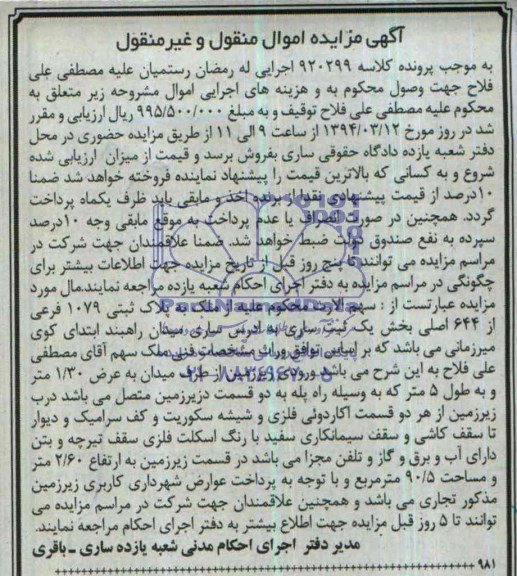 آگهی مزایده اموال منقول و غیرمنقول
به موجب پرونده کلاسه ۹۲۰۲۹۹ اجرایی له رمضان رستمیان علیه مصطفی علی
فلاح جهت وصول محکوم به و هزینه های اجرایی اموال مشروحه زیر متعلق به
محکوم علیه مصطفی علی فلاح توقیف و به مبلغ ۹۹۵/۵۰۰/۰۰۰ ریال ارزیابی و مقرر
شد در روز مورخ ۱۳۹۴/۰۳/۱۲ از ساعت ۹ الی ۱۱ از طریق مزایده حضوری در محل
دفتر شعبه یازده دادگاه حقوقی ساری بفروش برسد و قیمت از میزان ارزیابی شده
شروع و به کسانی که بالاترین قیمت را پیشنهاد نماینده فروخته خواهد شد ضمنا
۱۰درصد از قیمت پیشنهادی نقدا از برنده اخذ و مابقی باید ظرف یکماه پرداخت
گردد. همچنین در صورت انصراف یا عدم پرداخت به موقع مابقی وجه ۱۰درصد
سپرده به نفع صندوق دولت ضبط خواهد شد. ضمنا علاقمندان جهت شرکت در
مراسم مزایده می توانند تا پنج روز قبل از تاریخ مزایده جهت اطلاعات بیشتر برای
چگونگی در مراسم مزایده به دفتر اجرای احکام شعبه یازده مراجعه نمایند.مال مورد
مزایده عبارتست از : سهم الارث محکوم علیه از ملک به پلاک ثبتی ۱۰۷۹ فرعی
از ۶۴۴ اصلی بخش یک ثبت ساری به آدرس ساری میدان راهبند ابتدای کوی
میرزمانی می باشد که بر اساس توافق وراث مشخصات فنی ملک سهم آقای مصطفی
علی فلاح به این شرح می باشد ورودی زیرزمین از طرف میدان به عرض ۱/۳۰ متر
و به طول ۵ متر که به وسیله راه پله به دو قسمت درزیرزمین متصل می باشد درب
زیرزمین از هر دو قسمت آکاردوئی فلزی و شیشه سکوریت و کف سرامیک و دیوار
تا سقف کاشی و سقف سیمانکاری سفید با رنگ اسکلت فلزی سقف تیرچه و بتن
دارای آب و برق و گاز و تلفن مجزا می باشد در قسمت زیرزمین به ارتفاع ۲/۶۰ متر
و مساحت ۹۰/۵ مترمربع و با توجه به پرداخت عوارض شهرداری کاربری زیرزمین
مذکور تجاری می باشد و همچنین علاقمندان جهت شرکت در مراسم مزایده می
توانند تا ۵ روز قبل مزایده جهت اطلاع بیشتر به دفتر اجرای احکام مراجعه نمایند.
مدیر دفتر اجرای احکام مدنی شعبه یازده ساری ـ باقری
۹۸۱